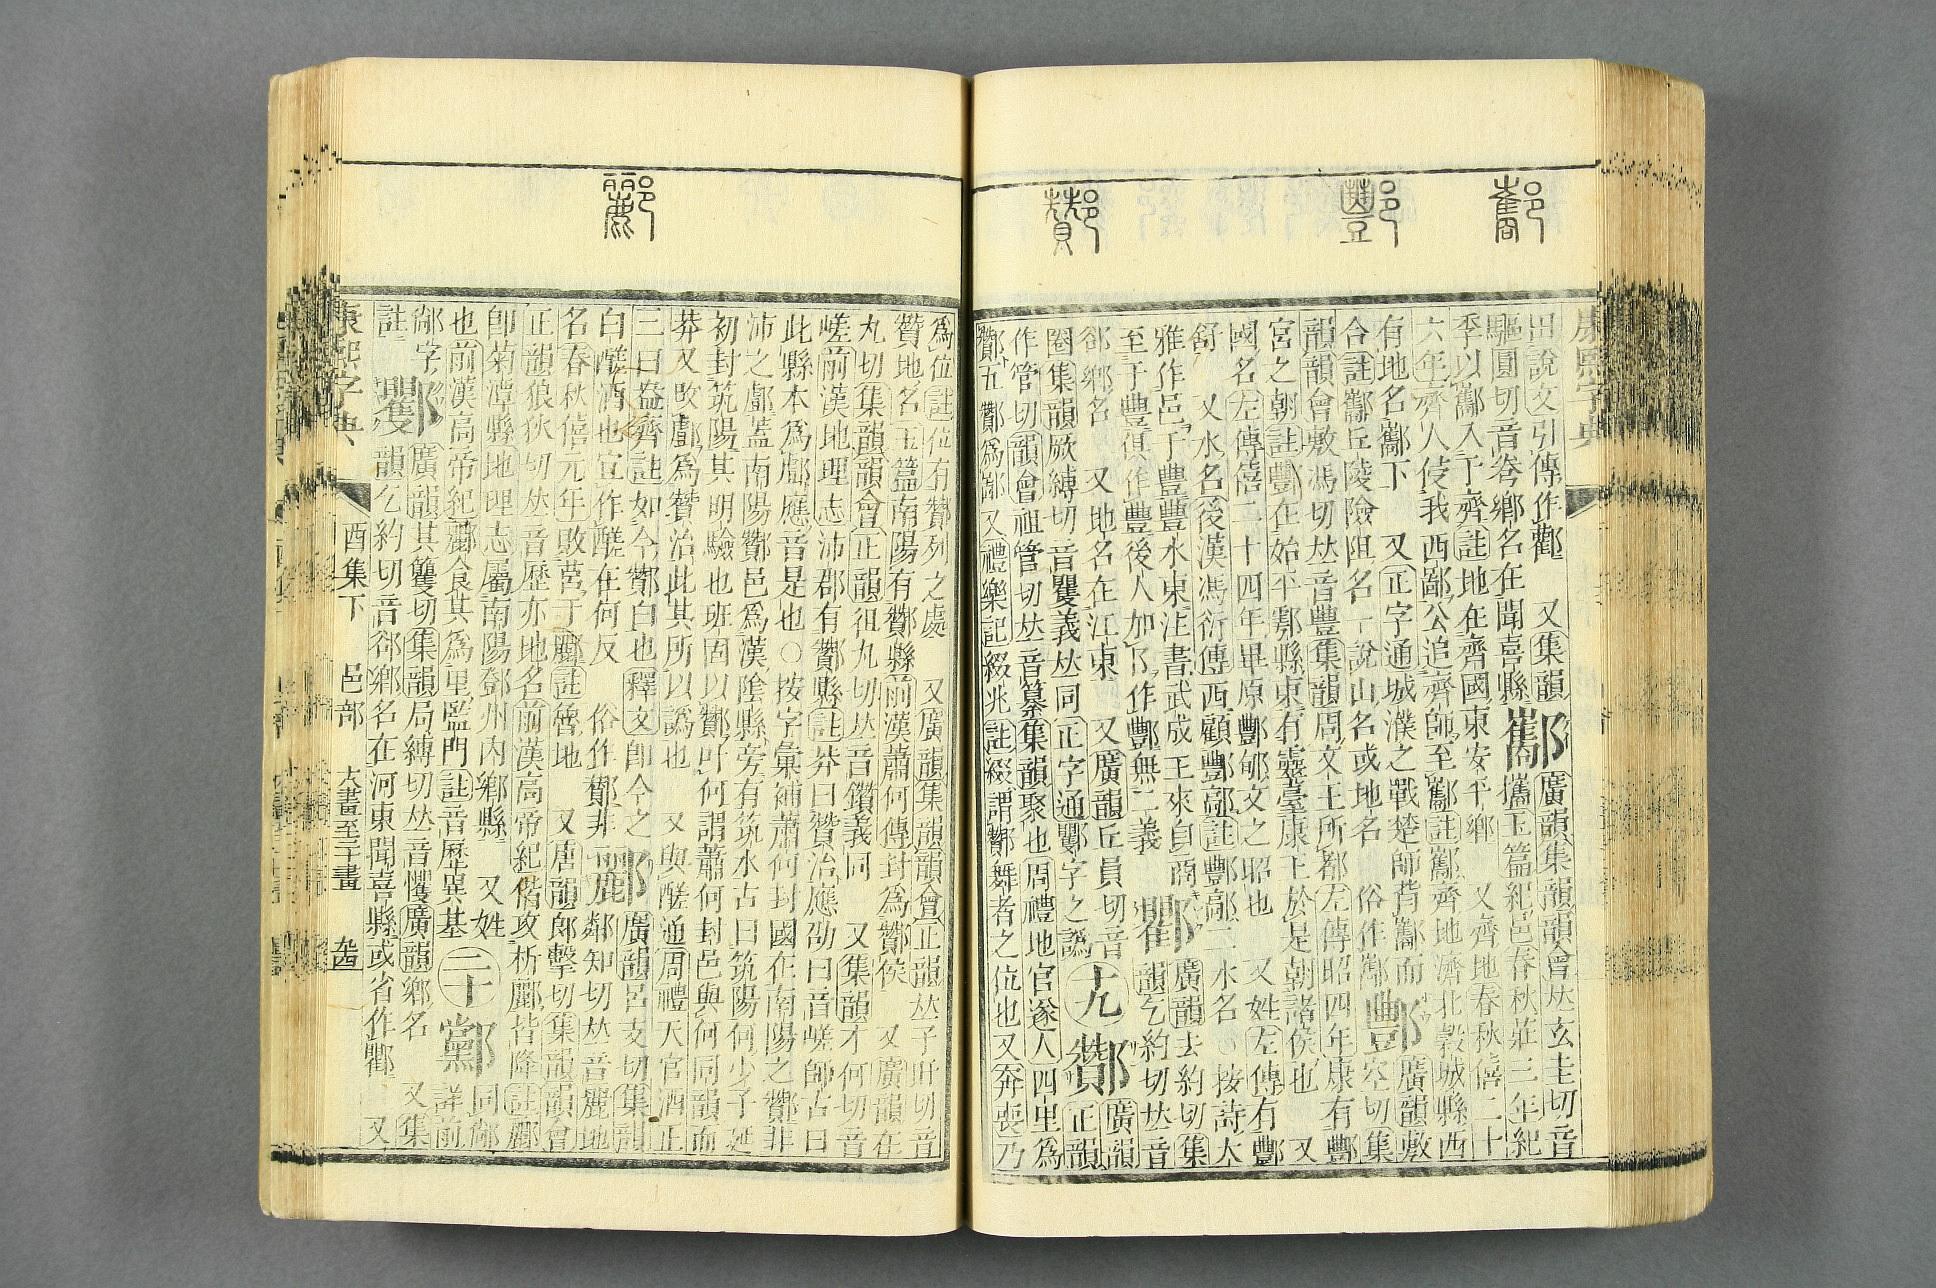 酅
酆
酇
酈
康熙字典
出說文引傳作酄 又集韻
驅圓切音棬鄉名在聞喜縣酅廣韻集韻韻會𠀤玄圭切音
攜玉篇紀邑春秋莊三年紀
季以酅入于齊註地在齊國東安平鄉 又齊地春秋僖二十
六年齊人侵我西鄙公追齊師至酅註酅齊地濟北穀城縣西
有地名酅下 又正字通城濮之戰楚師背酅而
合註酅丘陵險阻名一說山名或地名 俗作
酆廣韻敷
空切集
韻韻會敷馮切𠀤音豐集韻周文王所都左傳昭四年康有酆
宮之朝註酆在始平鄠縣東有靈臺康王於是朝諸侯也 又
國名左傳僖二十四年畢原酆郇文之昭也 又姓左傳有酆
舒 又水名後漢馮衍傳西顧酆鄗註酆鄗二水名○按詩大
雅作邑于豐豐水東注書武成王來自商
至于豐俱作豐後人加阝作酆無二義
廣韻去約切集
韻乞約切𠀤音
郤鄉名 又地名在江東 又廣韻丘員切音
圈集韻厥縛切音矍義𠀤同正字通酁字之譌
十九
酇
廣韻
正韻
作管切韻會祖管切𠀤音纂集韻聚也周禮地官遂人四里爲
酇五酇爲鄙 又禮樂記綴兆註綴謂酇舞者之位也又奔喪乃
爲位註位有酇列之處 又廣韻集韻韻會正韻𠀤子旰切音
贊地名玉篇南陽有酇縣前漢蕭何傳封爲酇侯 又廣韻在
九切集韻韻會正韻祖九切𠀤音鑽義同 又集韻才何切音
嵯前漢地理志沛郡有酇縣註莽曰贊治應劭曰音嵯師古曰
此縣本爲𨟹應音是也○按字彙補蕭何封國在南陽之酇非
沛之𨟹蓋南陽酇邑爲漢陰縣旁有筑水古曰筑陽何少子延
初封筑陽其明驗也班固以酇叶何謂蕭何封邑與何同韻而
莽又改𨟹爲贊治此其所以譌也 又與醝通周禮天官酒正
三曰盎齊註如今酇白也釋文卽今之
白醝酒也宜作醝在何反 俗作酇非
酈
廣韻呂支切集韻
鄰知切𠀤音麗地
名春秋僖元年敗莒于酈註魯地 又唐韻郎擊切集韻韻會
正韻狼狄切𠀤音歷亦地名前漢高帝紀偕攻析酈皆降註酈
卽菊潭縣地理志屬南陽鄧州內鄉縣 又姓
也前漢高帝紀酈食其爲里監門註音歷異基
二十
同鄗
詳前
鄗字
酁
廣韻其籰切集韻局縛切𠀤音戄廣韻鄉名 又集
註
韻乞約切音郤鄉名在河東聞喜縣或省作 又
康熙字典
酉集下 邑部 大畫至二十畫